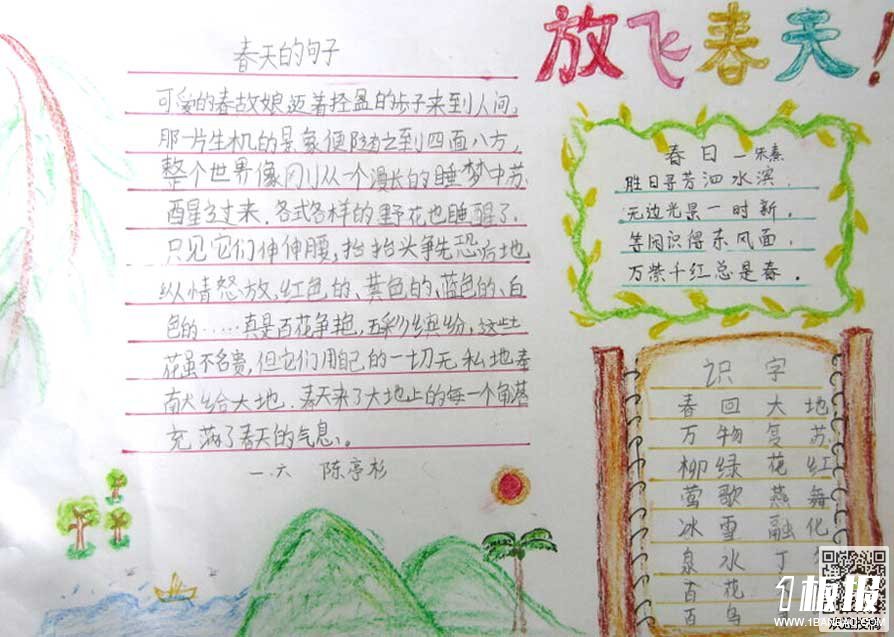 放飞春天！
春天的句子
可爱的春姑娘迈着轻盈的步子来到人间,
那一片生机的景象便随之到四面八方,
整个世界像刚从一个漫长的睡梦中苏
醒了过来.各式各样的野花也睡醒了.
只见它们伸伸腰,抬抬头争先恐后地
纵情怒放,红色的、黄色的、蓝色的、白
色的……真是百花争艳,五彩缤纷,这些
花虽不名贵,但它们用自己的一切无私地奉
献给大地.春天来了大地上的每一个角落
充满了春天的气息。
一.六 陈亭杉
春日 — 朱熹
胜日寻芳泗水滨,
无边光景一时新。
等闲识得东风面,
万紫千红总是春。
识字
春回大地
万物复苏
柳绿花红
莺歌燕舞
冰雪融化
泉水丁
百花
百鸟
1板报
WWW.1BANBAO.COM
欢迎投稿